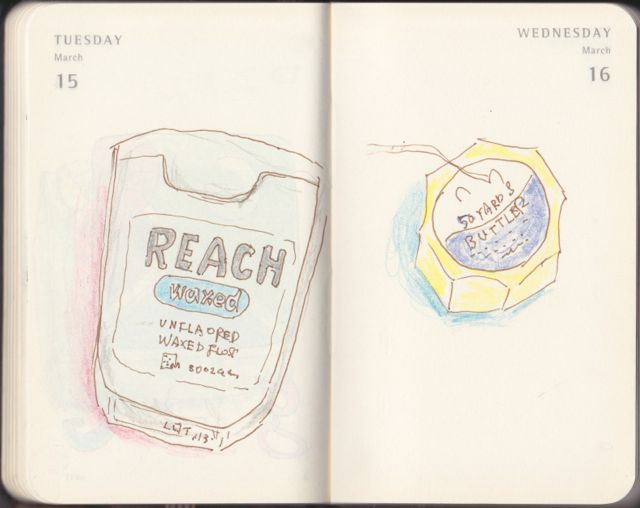 TUESDAY
March
15
REACH
waxed
UNFLAORED
WAXED FLOS
LOT
WEDNESDAY
March
16
50 YARDS
BUTTLER